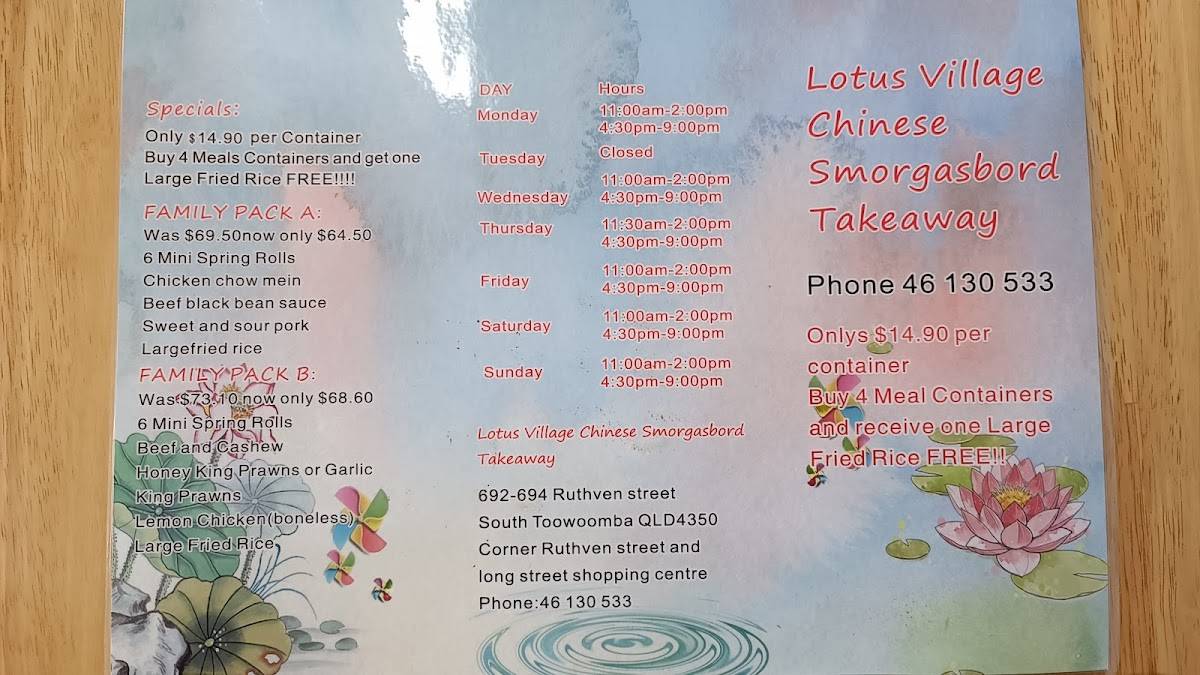 Specials:
Only $14.90 per Container
Buy 4 Meals Containers and get one
Large Fried Rice FREE!!!!
FAMILY PACK A:
Was $69.50now only $64.50
6 Mini Spring Rolls
Chicken chow mein
Beef black bean sauce
Sweet and sour pork
Largefried rice
FAMILY PACK B:
Was $73.10 now only $68.60
6 Mini Spring Rolls
Beef and Cashew
Honey King Prawns or Garlic
King Prawns
Lemon Chicken(boneless)
Large Fried Rice
DAY Hours
Monday 11:00am-2:00pm
4:30pm-9:00pm
Tuesday Closed
Wednesday 11:00am-2:00pm
4:30pm-9:00pm
Thursday 11:30am-2:00pm
4:30pm-9:00pm
Friday 11:00am-2:00pm
4:30pm-9:00pm
Saturday 11:00am-2:00pm
4:30pm-9:00pm
Sunday 11:00am-2:00pm
4:30pm-9:00pm
Lotus Village Chinese Smorgasbord
Takeaway
692-694 Ruthven street
South Toowoomba QLD4350
Corner Ruthven street and
long street shopping centre
Phone:46 130 533
Lotus Village
Chinese
Smorgasbord
Takeaway
Phone 46 130 533
Onlys $14.90 per
container
Buy 4 Meal Containers
and receive one Large
Fried Rice FREE!!